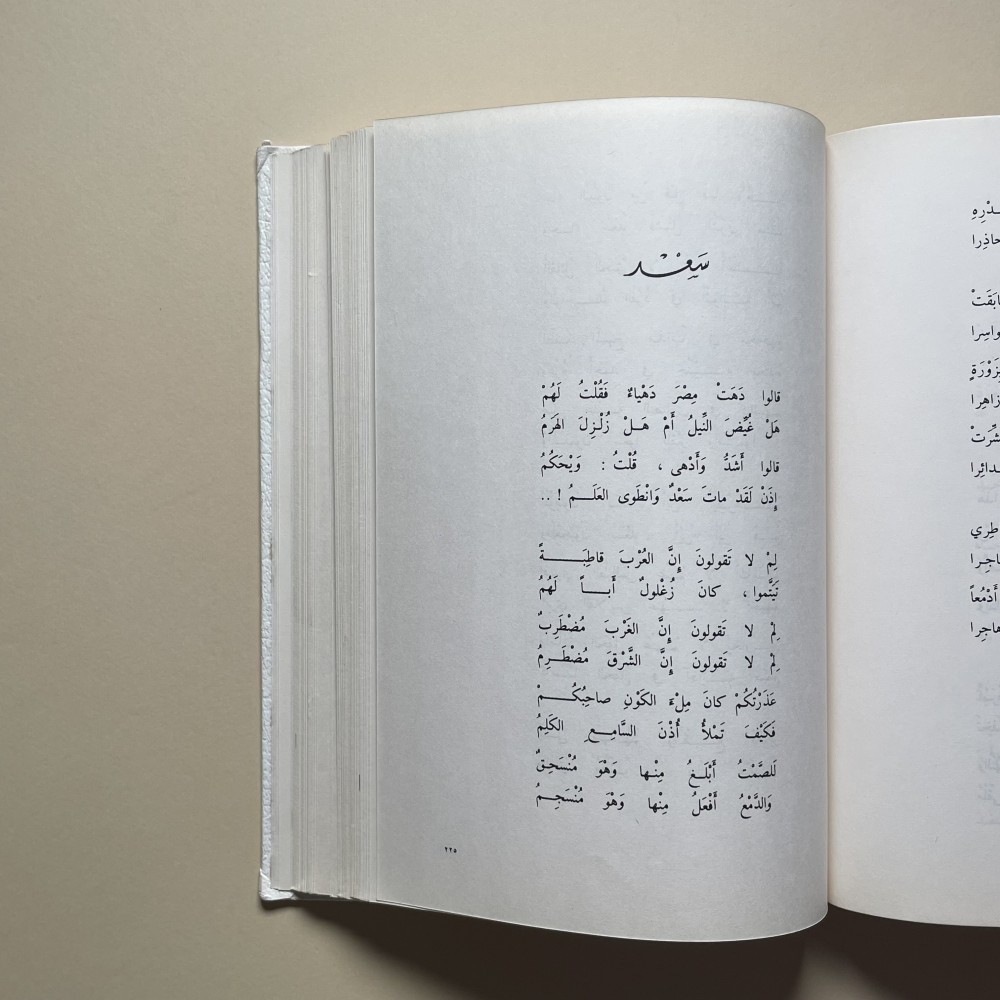 سَعْد
قالوا دَهَتْ مِصْرَ دَهْياءٌ فَقُلْتُ لَهُمْ
هَلْ غُيِّضَ النِّيلُ أَمْ هَـــلْ زُلْـزِلَ الهَرَمُ
قالوا أَشَدُّ وَأَدْهى ، قُلْتُ : وَيْحَكُمُ
إِذَنْ لَقَدْ ماتَ سَعْدٌ وَانْطَوى العَلَـــمُ ! ..
لِمْ لا تَقولونَ إِنَّ العُرْبَ قاطِبَـــــةً
تَيَتَّموا ، كانَ زُغْلولٌ أَبـــــاً لَهُمُ
لِمْ لا تَقولونَ إِنَّ الغَرْبَ مُضْطَرِبٌ
لِمْ لا تَقولونَ إِنَّ الشَّرْقَ مُضْطَــرِمُ
عَذَرْتُكُمْ كانَ مِلْءَ الكَوْنِ صاحِبُكُـــمْ
فَكَيْفَ تَمْلأُ أُذْنَ السَّامِـــعِ الكَلِمُ
لَلصَّمْتُ أَبْلَــغُ مِنْـها وَهْوَ مُنْسَحِقٌ
وَالدَّمْعُ أَفْعَلُ مِنْها وَهْوَ مُنْسَجِـــمُ
٢٢٥
ـدْرِهِ
حاذِرا
ابَقَتْ
واسِرا
زَوْرَةٍ
زاهِرا
شِّرَتْ
ـدائِرا
طِري
اجِـرا
أَدْمُعاً
هاجِرا